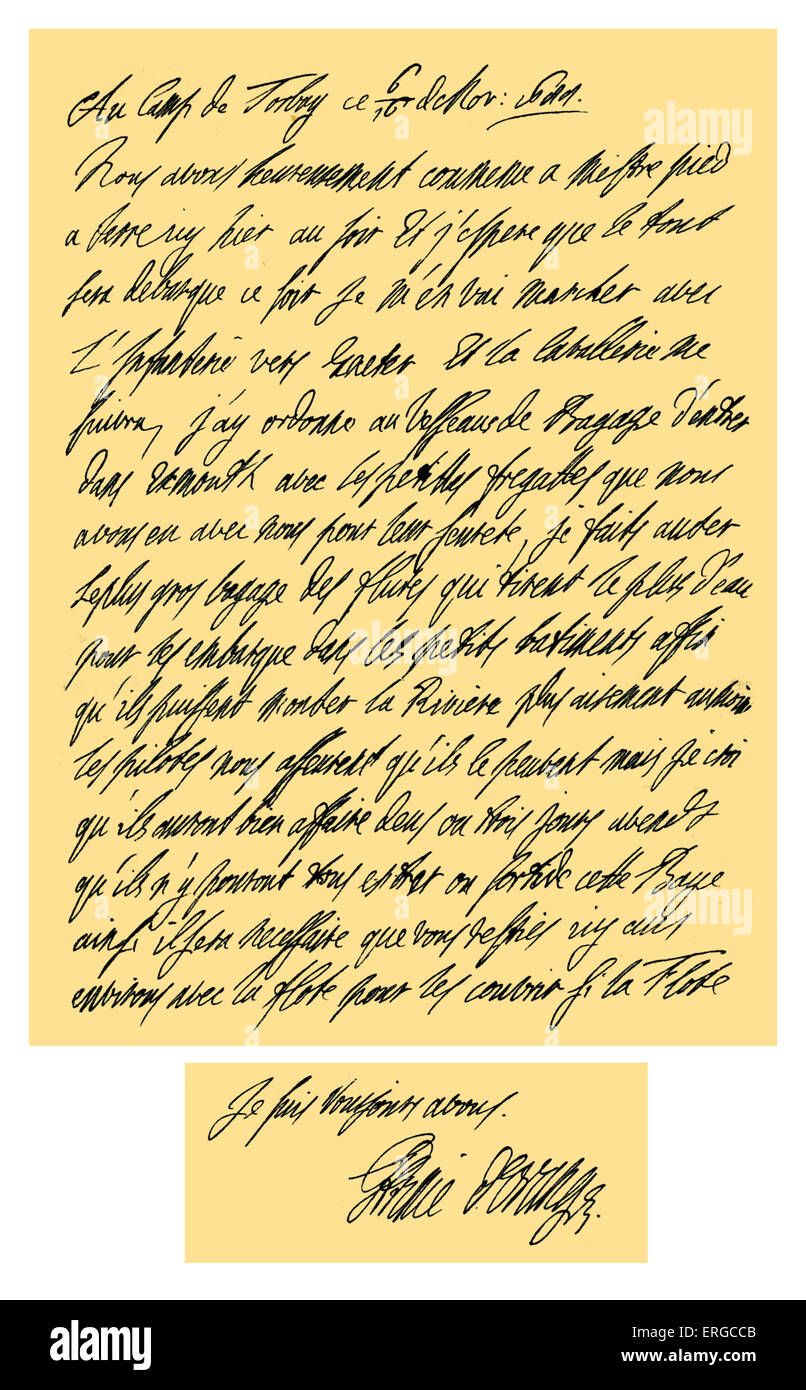 Au Camp de Torbay ce 6/16 de Nov: 1688.
Nous avons heureusement commence a mestre pied
a terre icy hier au soir Et j'espere que le tout
sera debarque ce soir Je m'en vai marcher avec
L'Infanterie vers Exeter Et la Cavallerie me
suivra, j'ay ordonne au Vesseaus de Bagage d'entrer
dans Exmouth avec les petittes fregattes que nous
avons eu avec nous pour leur seureté, je faits
le plus gros bagage des flutes qui tirent le plus d'eau
pour les embarque dans les petits batiments affin
qu'ils puissent monter la Riviere plus aisement au moin
les pilotes nous asseurent qu'ils le peuvent mais je croi
qu'ils auront bien affaire deus ou trois jours avendt
qu'ils n'y pouront tous entrer ou sortir de cette Baye
ainsi il sera necessaire que vous resties icy aus
environs avec la flote pour les couvrir si la Flote
Je suis tousjours a vous.
Prince d'Orange.
alamy
alamy
alamy
alamy
Image ID: ERGCCB
www.alamy.com